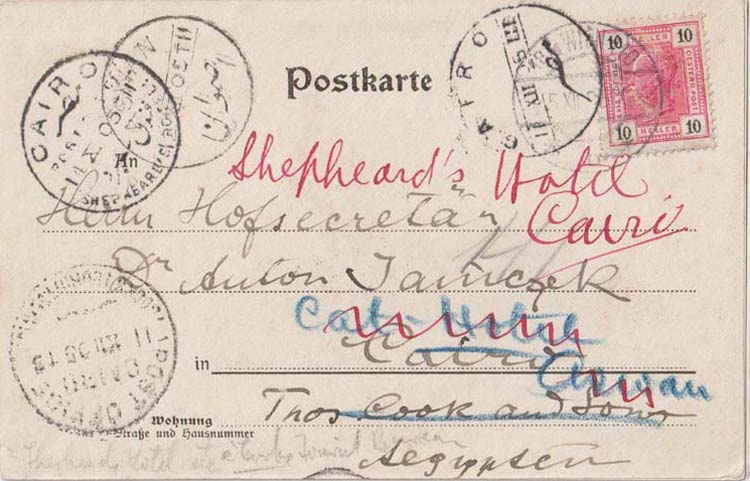 Postkarte
An
Shepheard's Hotel
Cairo
Herrn Hofsecretär
Dr Anton Jamczek
Cook Hotel
in Cairo
Assuan
Thos Cook and Sons
Wohnung
Straße und Hausnummer
Aegypten
Shepheards Hotel
CAIRO
SHEPHEARD'S
حلوان
CAIRO
XII 05
WIEN
10 10
HELLER
10 10
POST OFFICE
CAIRO
11 XII 05